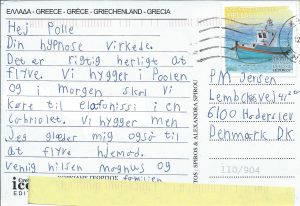 ΕΛΛΑΔΑ - GREECE - GRÈCE - GRIECHENLAND - GRECIA
Hej Polle
Din hypnose virkede.
Det er rigtig herligt at
flyve. Vi hygger i Poolen
og i morgen skal vi
køre til elafonissi i en
Cabriolet. Vi hygger men
Jeg glæder mig også til
at flyve hjemad.
Venlig hilsen Magnus og
familien
P.M Jensen
Lembckesvej
6100 Haderslev
Denmark DK
SPIROS & ALEXANDRA SPIROU
110/904